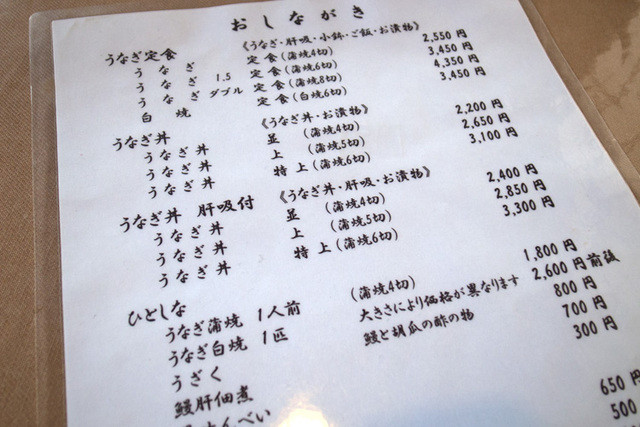 おしながき
うなぎ定食 《うなぎ・肝吸・小鉢・ご飯・お漬物》
うなぎ 定食(蒲焼4切) 2,550円
うなぎ 1.5 定食(蒲焼6切) 3,450円
うなぎ ダブル 定食(蒲焼8切) 4,350円
白焼 定食(白焼6切) 3,450円
うなぎ丼 《うなぎ丼・お漬物》
うなぎ丼 並 (蒲焼4切) 2,200円
うなぎ丼 上 (蒲焼5切) 2,650円
うなぎ丼 特上(蒲焼6切) 3,100円
うなぎ丼 肝吸付 《うなぎ丼・肝吸・お漬物》
うなぎ丼 並 (蒲焼4切) 2,400円
うなぎ丼 上 (蒲焼5切) 2,850円
うなぎ丼 特上(蒲焼6切) 3,300円
ひとしな
うなぎ蒲焼 1人前 (蒲焼4切) 1,800円
うなぎ白焼 1匹 大きさにより価格が異なります 2,600円前後
うざく 鰻と胡瓜の酢の物 800円
鰻肝佃煮 700円
せんべい 300円
650円
500